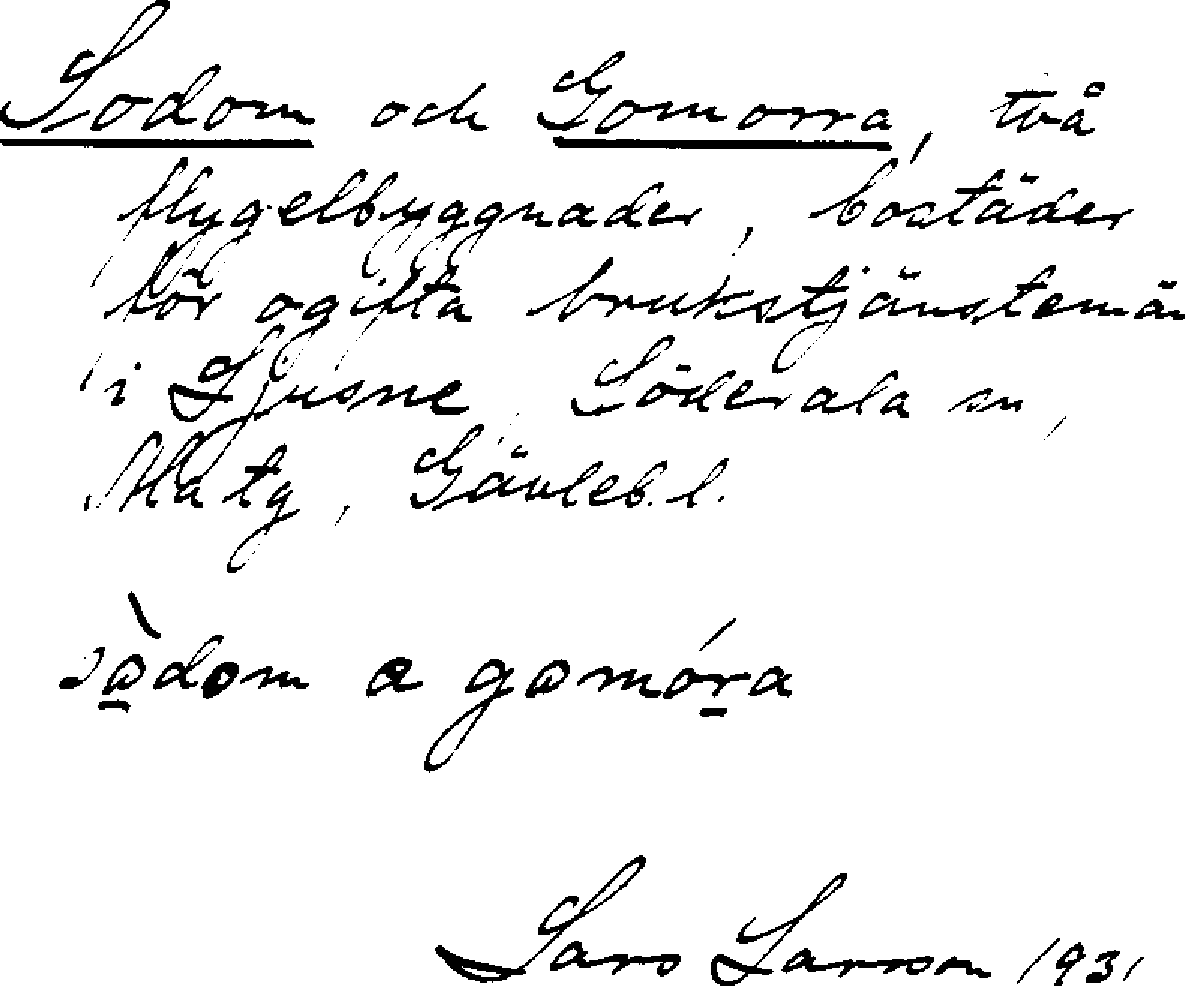 Sodom och Gomorra, två
flygelbyggnader, bostäder
för ogifta brukstjänstemän
i Ljusne, Söderala sn,
Ala tg, Gävleb. l.
sòdom a gomóra
Lars Larsson 1931